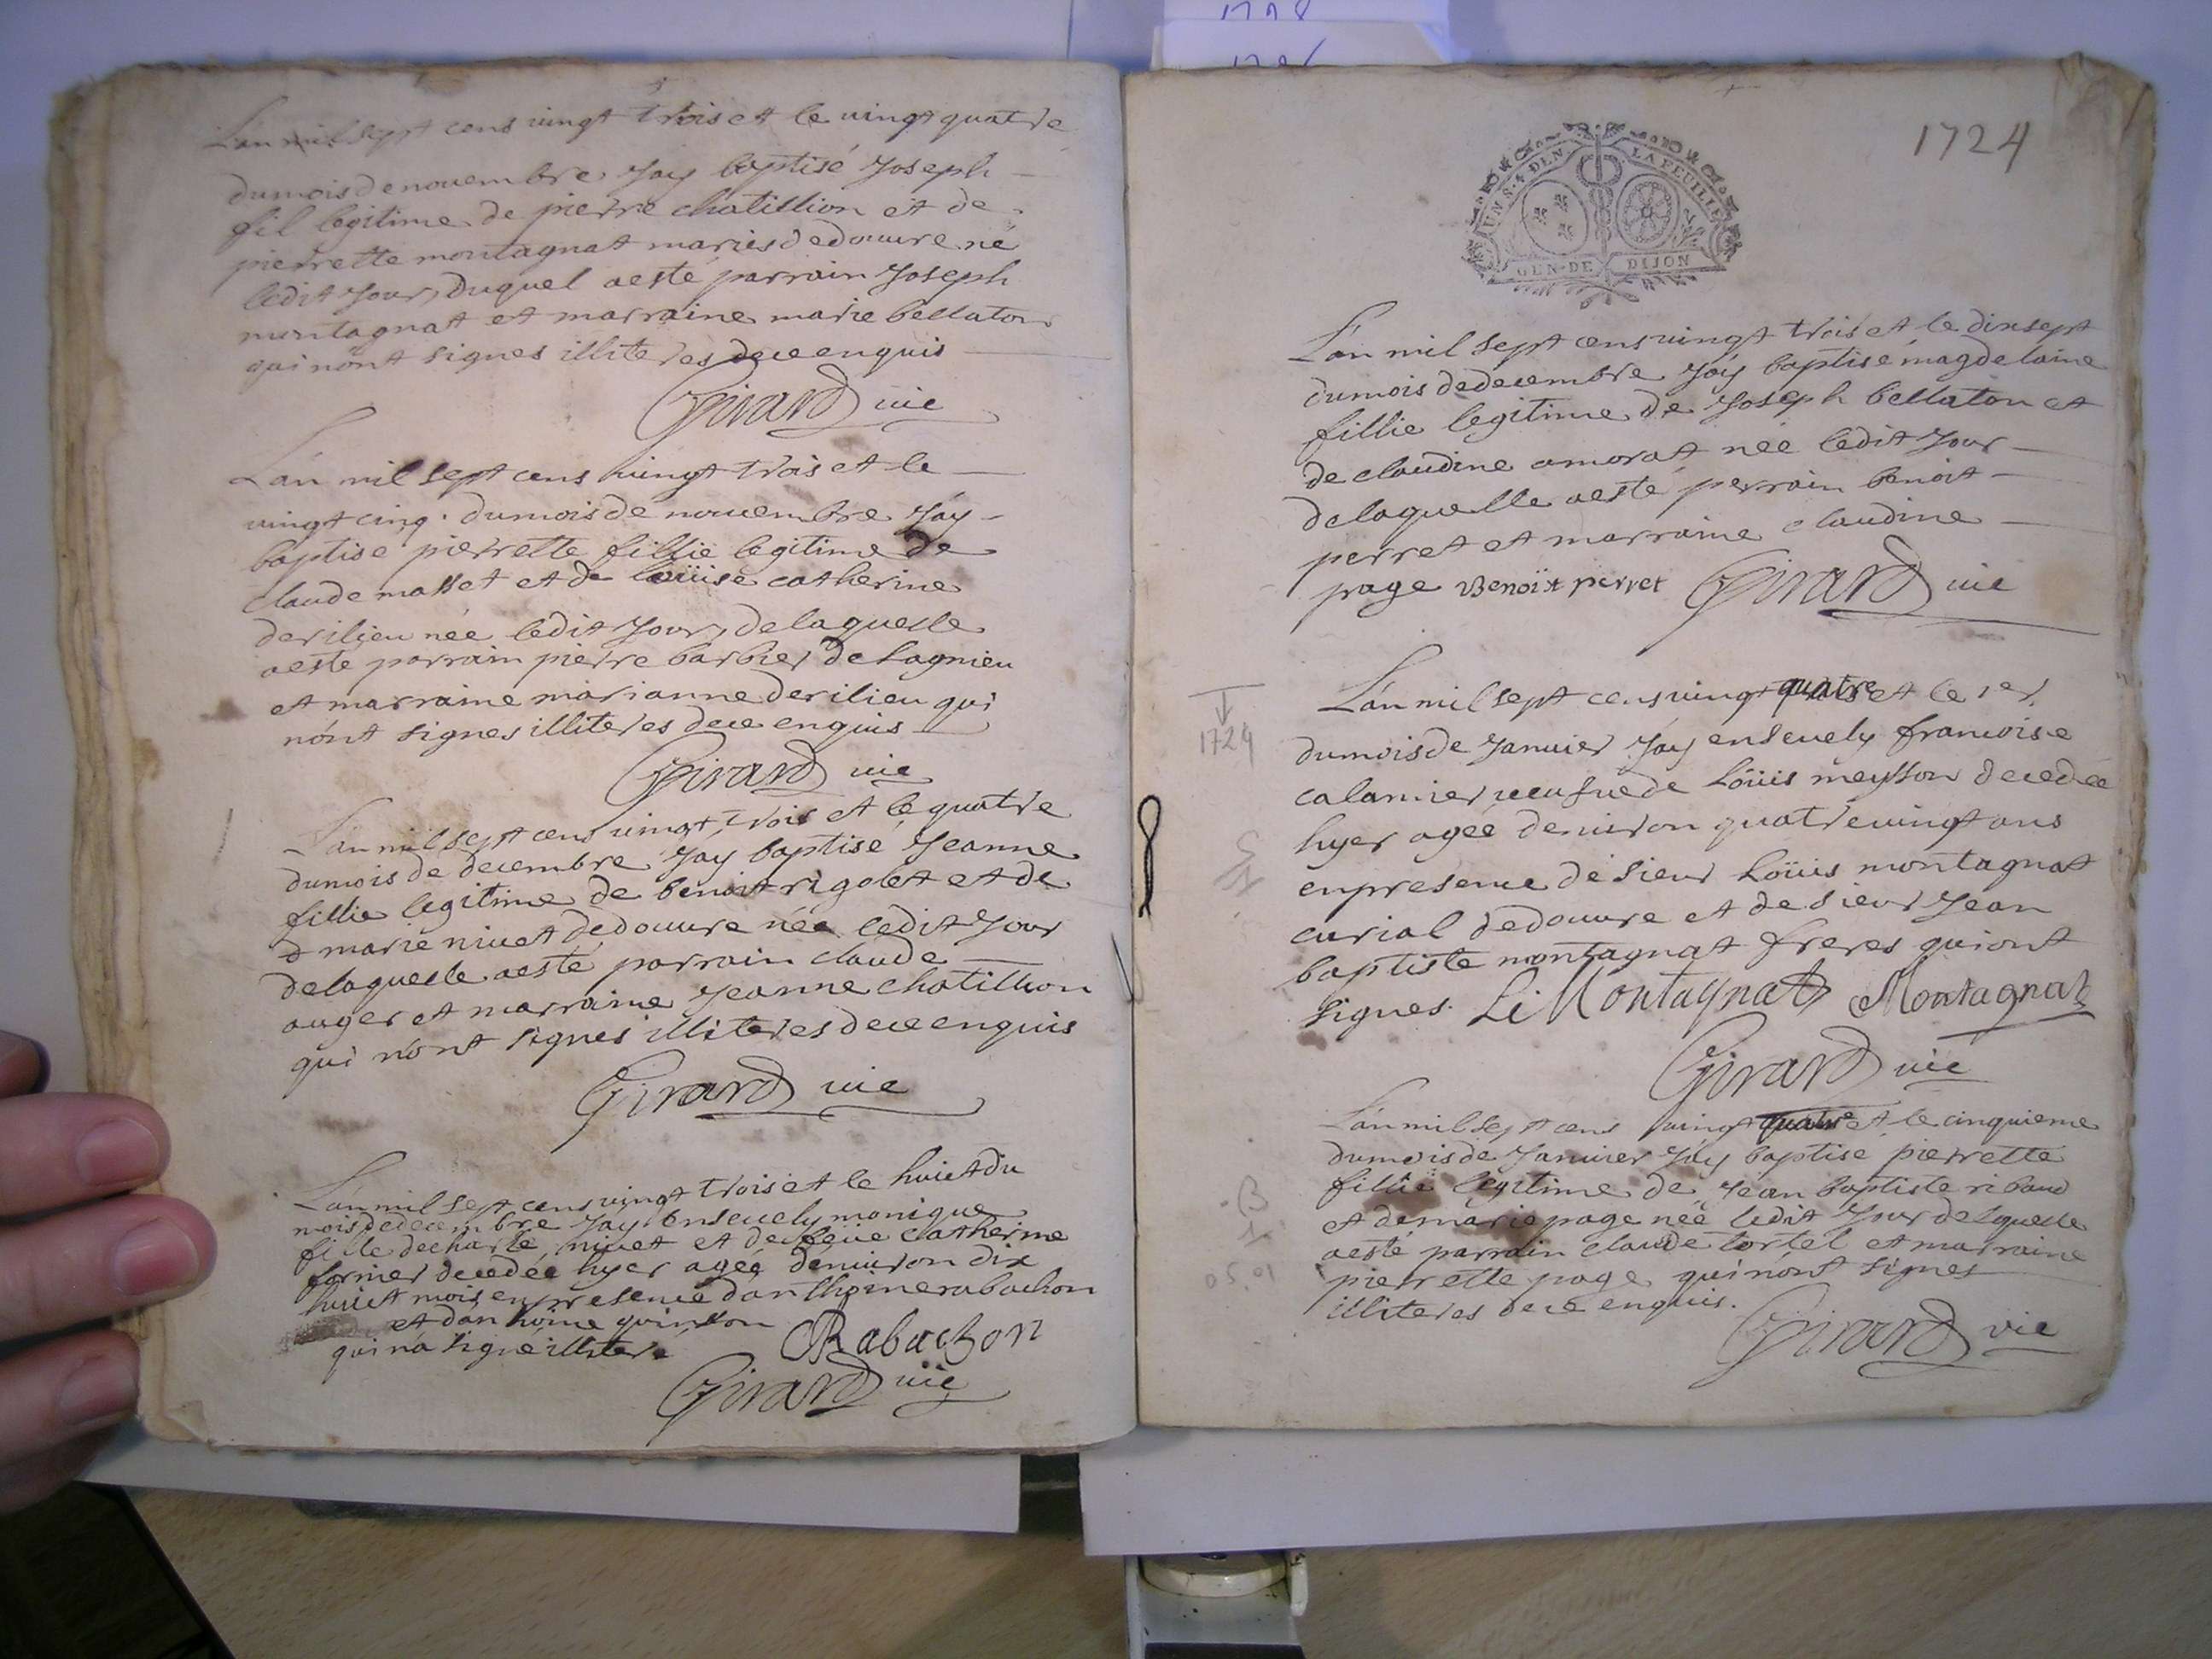 L'an mil sept cens vingt trois et le vingt quatre
du mois de nouembre J'ay baptisé Joseph
fil legitime de pierre chatillion et de
pierrette montagnat mariés de douure né
ledit Jour, duquel a esté parrain Joseph
montagnat et marraine marie bellaton
qui n'ont signes illiteres de ce enquis
Girard vic
L'an mil sept cens vingt trois et le
vingt cinq du mois de nouembre J'ay
baptisé pierrette fillie legitime de
claude masset et de loüise catherine
derilieu née ledit Jour, de laquelle
a esté parrain pierre barbier de Lagnieu
et marraine marianne derilieu qui
n'ont signes illiteres de ce enquis
Girard vic
L'an mil sept cens vingt trois et le quatre
du mois de decembre J'ay baptisé Jeanne
fillie legitime de benoit rigolet et de
marie niuet de douure née ledit Jour
de laquelle a esté parrain claude
auger et marraine Jeanne chatillion
qui n'ont signes illiteres de ce enquis
Girard vic
L'an mil sept cens vingt trois et le huict du
mois de decembre J'ay enseuely monique
fille de charle niuet et de feüe Catherine
formier decedée hyer agée d'enuiron dix
huict mois en presence d'anthoine rabachon
et d'anthoine quinson
qui n'a signé illitere
Rabachon
Girard vic
1724
UN S. 4 DEN. LA FEUILLE
GEN. DE DIJON
L'an mil sept cens vingt trois et le dixsept
du mois de decembre J'ay baptisé magdelaine
fillie legitime de Joseph bellaton et
de claudine amorat née ledit Jour
de laquelle a esté perrain benoit
perret et marraine claudine
page Benoît perret Girard vic
L'an mil sept cens vingt quatre et le 1er
1724
du mois de Januier J'ay enseuely francoise
calamier veufue de Loüis meysson decedée
hyer agée d'enuiron quatreuingt ans
en presence de sieur Loüis montagnat
curial de douure et de sieur Jean
baptiste montagnat freres qui ont
signes. L Montagnat Montagnat
Girard vic
L'an mil sept cens vingt quatre et le cinquieme
du mois de Januier J'ay baptisé pierrette
fillie legitime de Jean baptiste ribaud
et de marie page née ledit Jour de laquelle
a esté parrain claude tortel et marraine
pierrette page qui n'ont signes
illiteres de ce enquis.
B
05.01
Girard vic